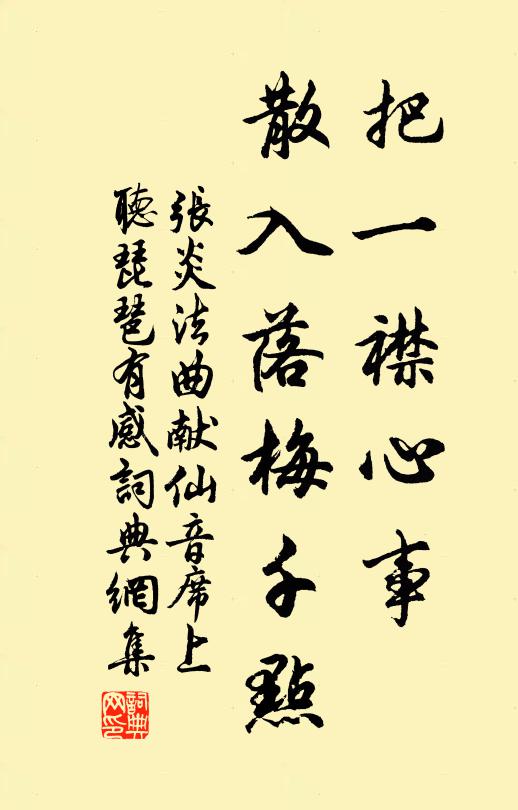 把一襟心事
散入落梅千點
張炎法曲献仙音席上
聽琵琶有感詞典網集
詞典网印